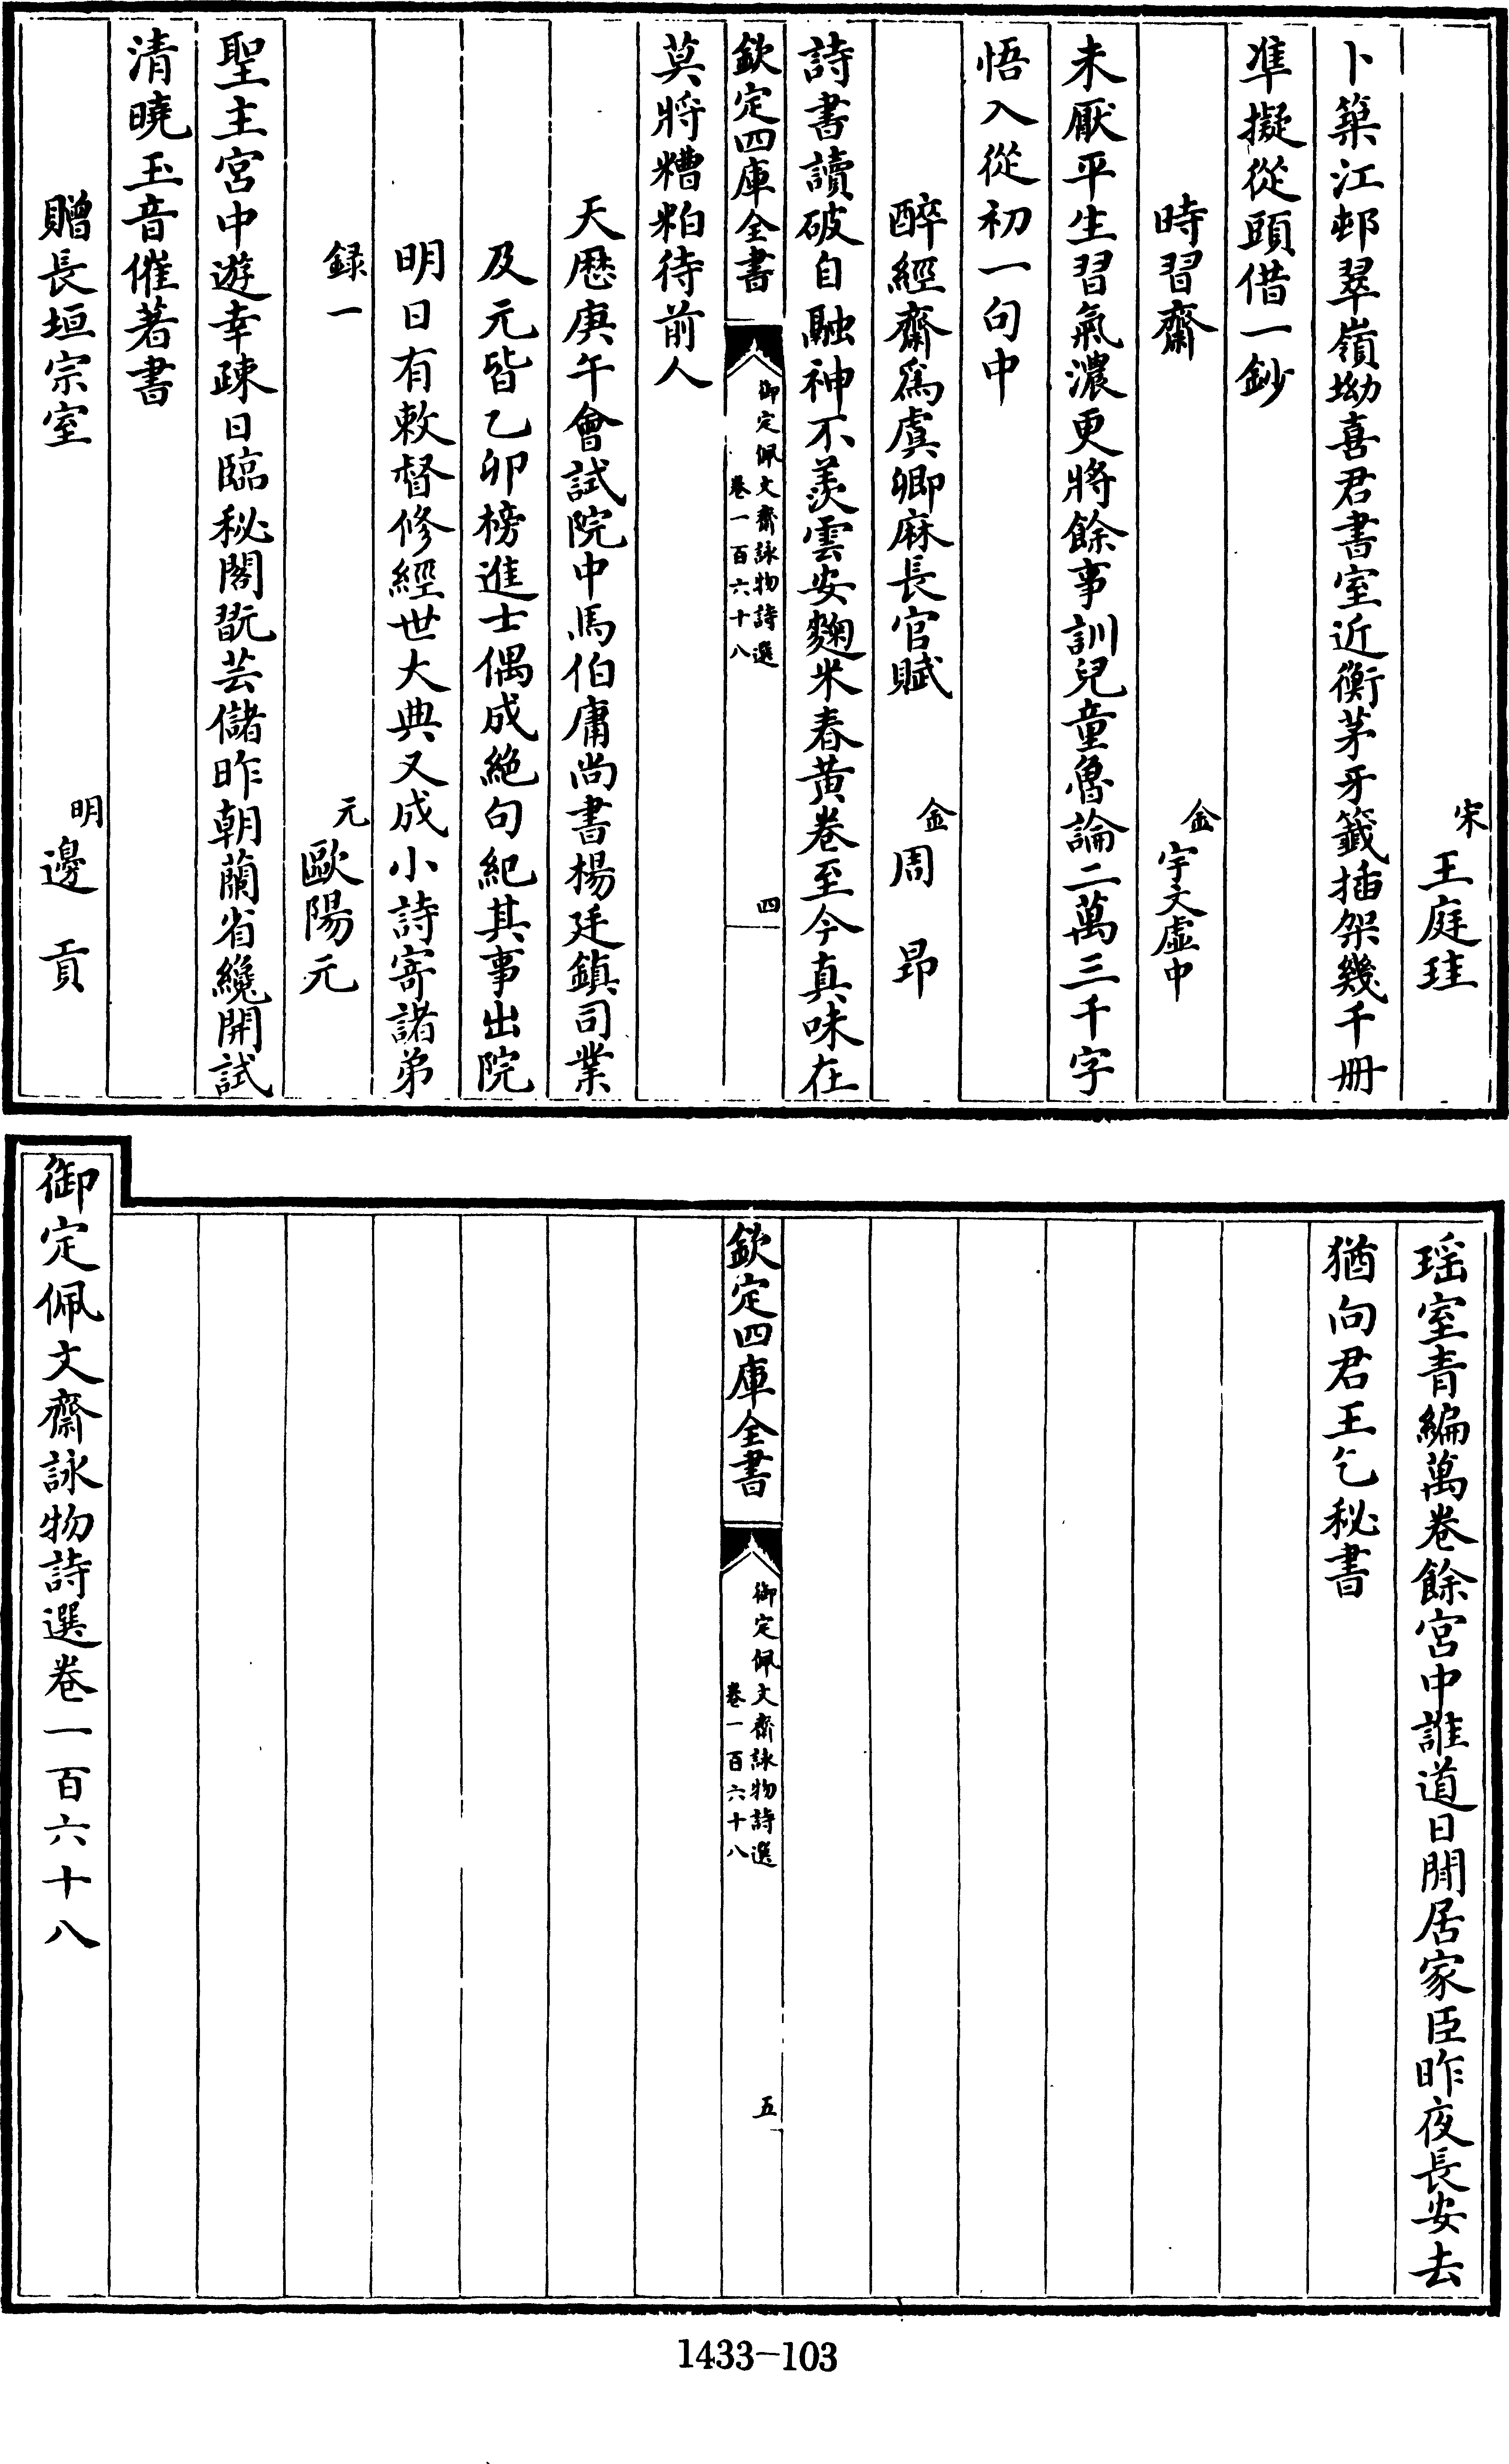 宋王庭珪
卜築江邨翠嶺坳喜君書室近衡茅牙籤插架幾千冊
準擬從頭借一鈔
時習齋　金宇文虛中
未厭平生習氣濃更將餘事訓兒童魯論二萬三千字
悟入從初一句中
醉經齋爲虞卿麻長官賦　金周昂
詩書讀破自融神不羨雲安麴米春黃卷至今真味在
欽定四庫全書
御定佩文齋詠物詩選
卷一百六十八
四
莫將糟粕待前人
天厯庚午會試院中馬伯庸尚書楊廷鎮司業
及元皆乙卯榜進士偶成絶句紀其事出院
明日有敕督修經世大典又成小詩寄諸弟
録一　元歐陽元
聖主宮中遊幸疎日臨秘閣翫芸儲昨朝蘭省纔開試
清曉玉音催著書
贈長垣宗室　明邊貢
瑶室青編萬卷餘宮中誰道日閒居家臣昨夜長安去
猶向君王乞秘書
欽定四庫全書
御定佩文齋詠物詩選
卷一百六十八
五
御定佩文齋詠物詩選卷一百六十八
1433-103